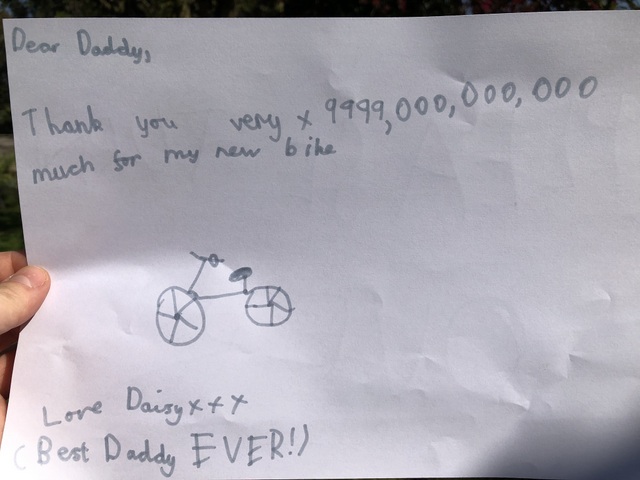 Dear Daddy,
Thank you very x 9999,000,000,000
much for my new bike
Love Daisy x + x
(Best Daddy EVER!)